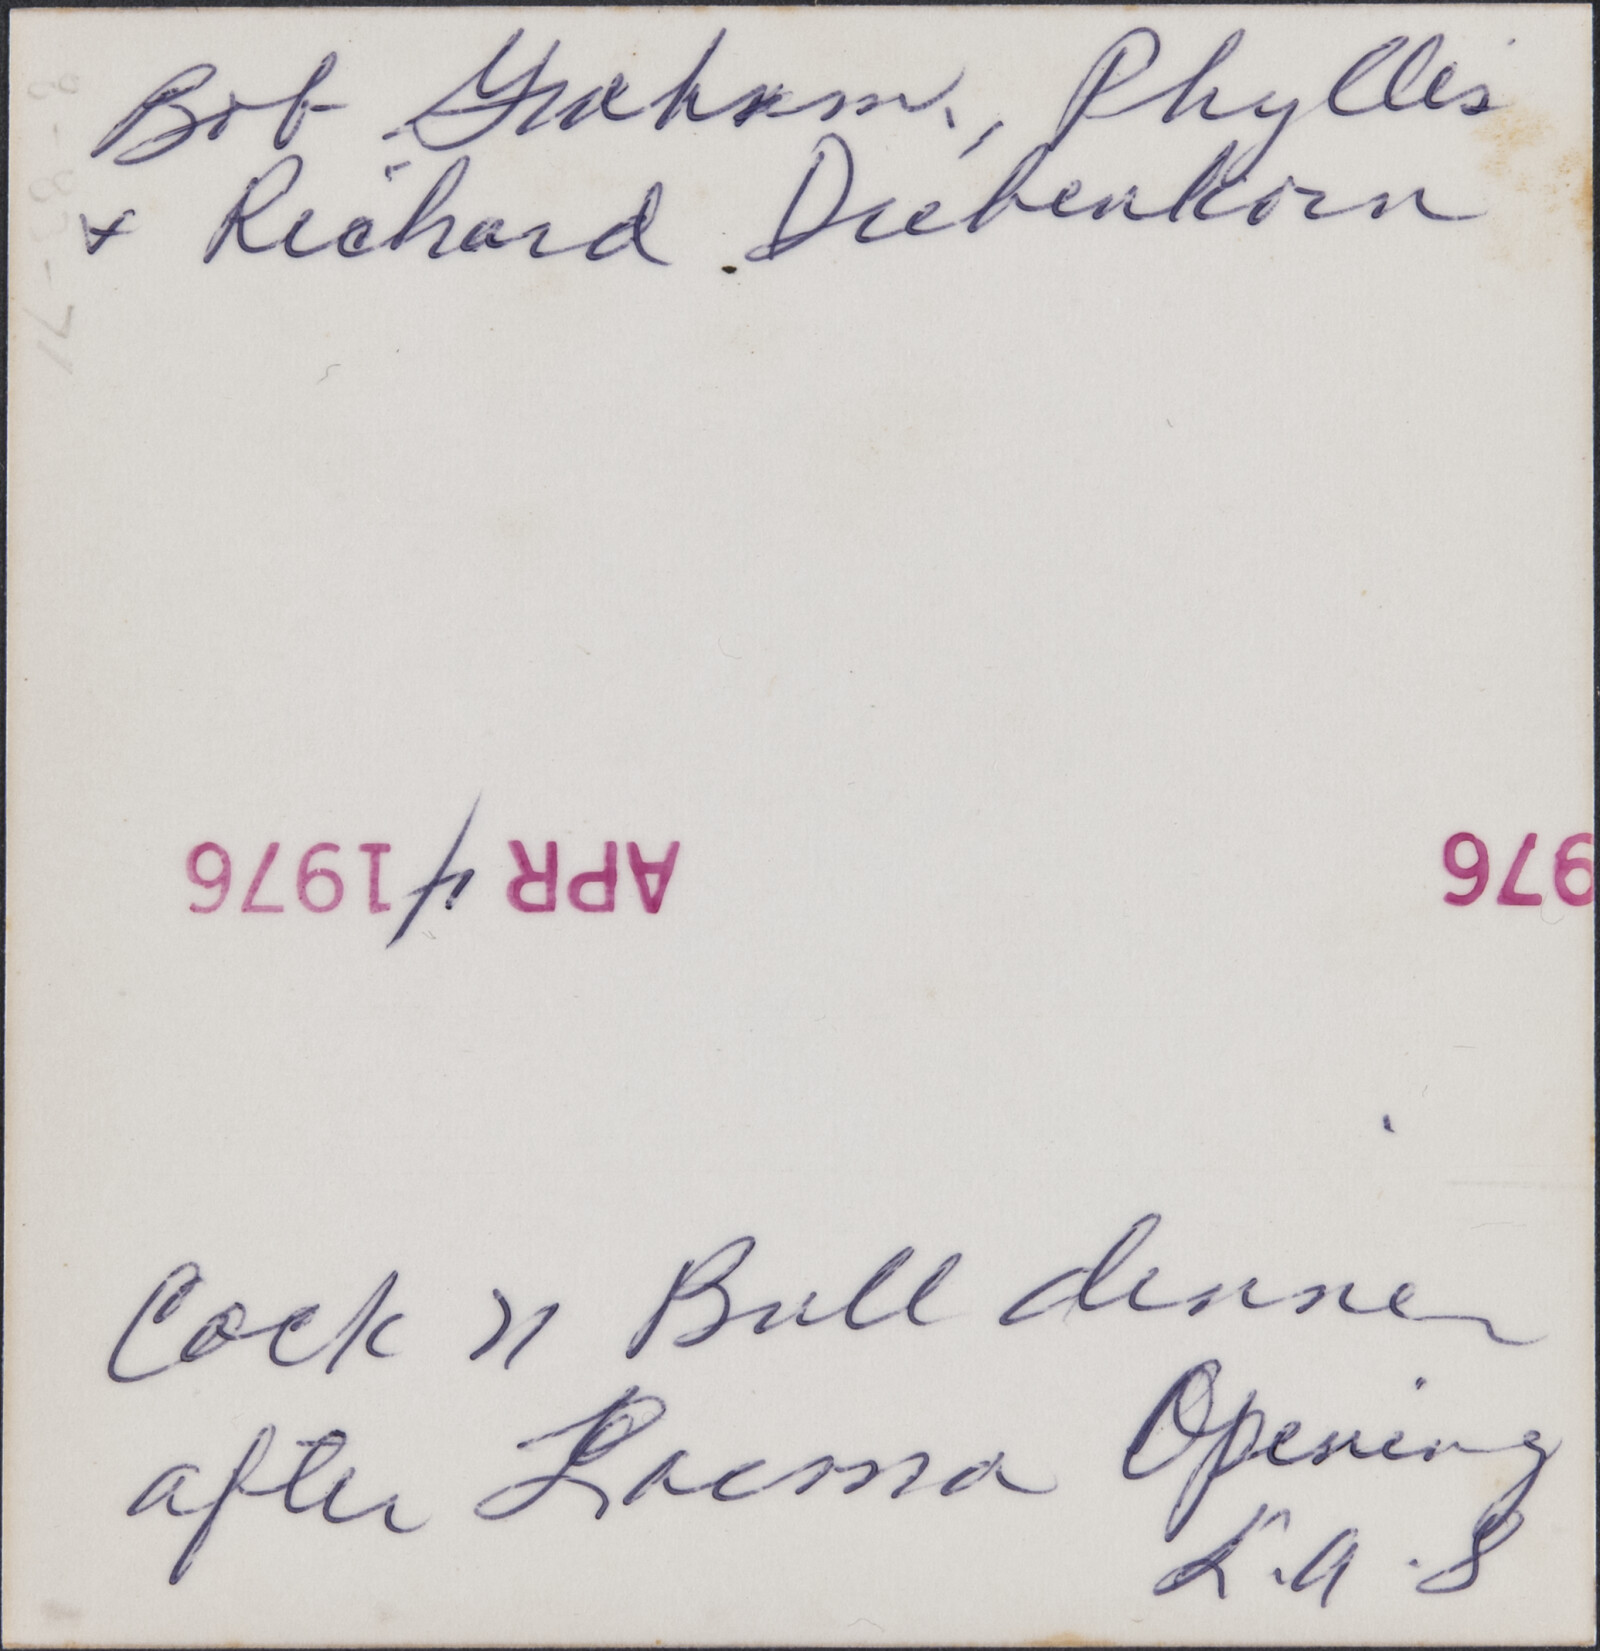 Bob Graham, Phyllis
+ Richard Diebenkorn
APR 1976
976
Cock n Bull dinner
after Lacma Opening
L.A.